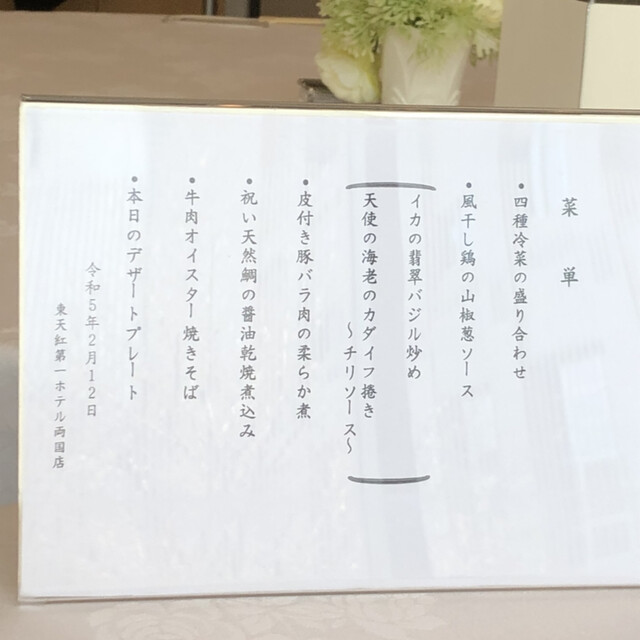 菜単
•四種冷菜の盛り合わせ
•風干し鶏の山椒葱ソース
イカの翡翠バジル炒め
天使の海老のカダイフ捲き
～チリソース～
•皮付き豚バラ肉の柔らか煮
•祝い天然鯛の醤油乾焼煮込み
•牛肉オイスター焼きそば
•本日のデザートプレート
令和5年2月12日
東天紅第一ホテル両国店